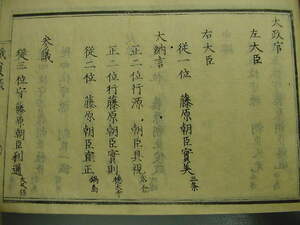 太政官
左大臣
右大臣
従一位 藤原朝臣實美 三条
大納言
正二位行源 朝臣具視 岩倉
正二位行藤原朝臣實則 徳大寺
従二位 藤原朝臣直正 鍋島
参議
従三位守 藤原朝臣利通 大久保